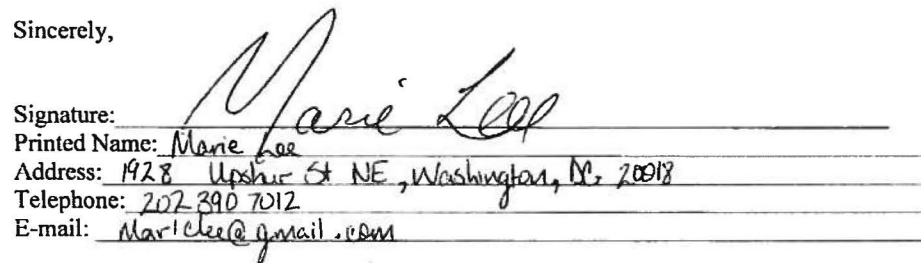 Sincerely,
Signature: Marie Lee
Printed Name: Marie Lee
Address: 1928 Upshur St NE, Washington, DC 20018
Telephone: 202 390 7012
E-mail: @gmail.com